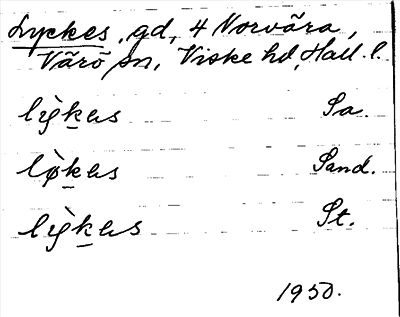 Lyckes, gd, 4 Norvära,
Värö sn, Viske hd, Hall. l.
Sa.
Sand.
St.
1950.